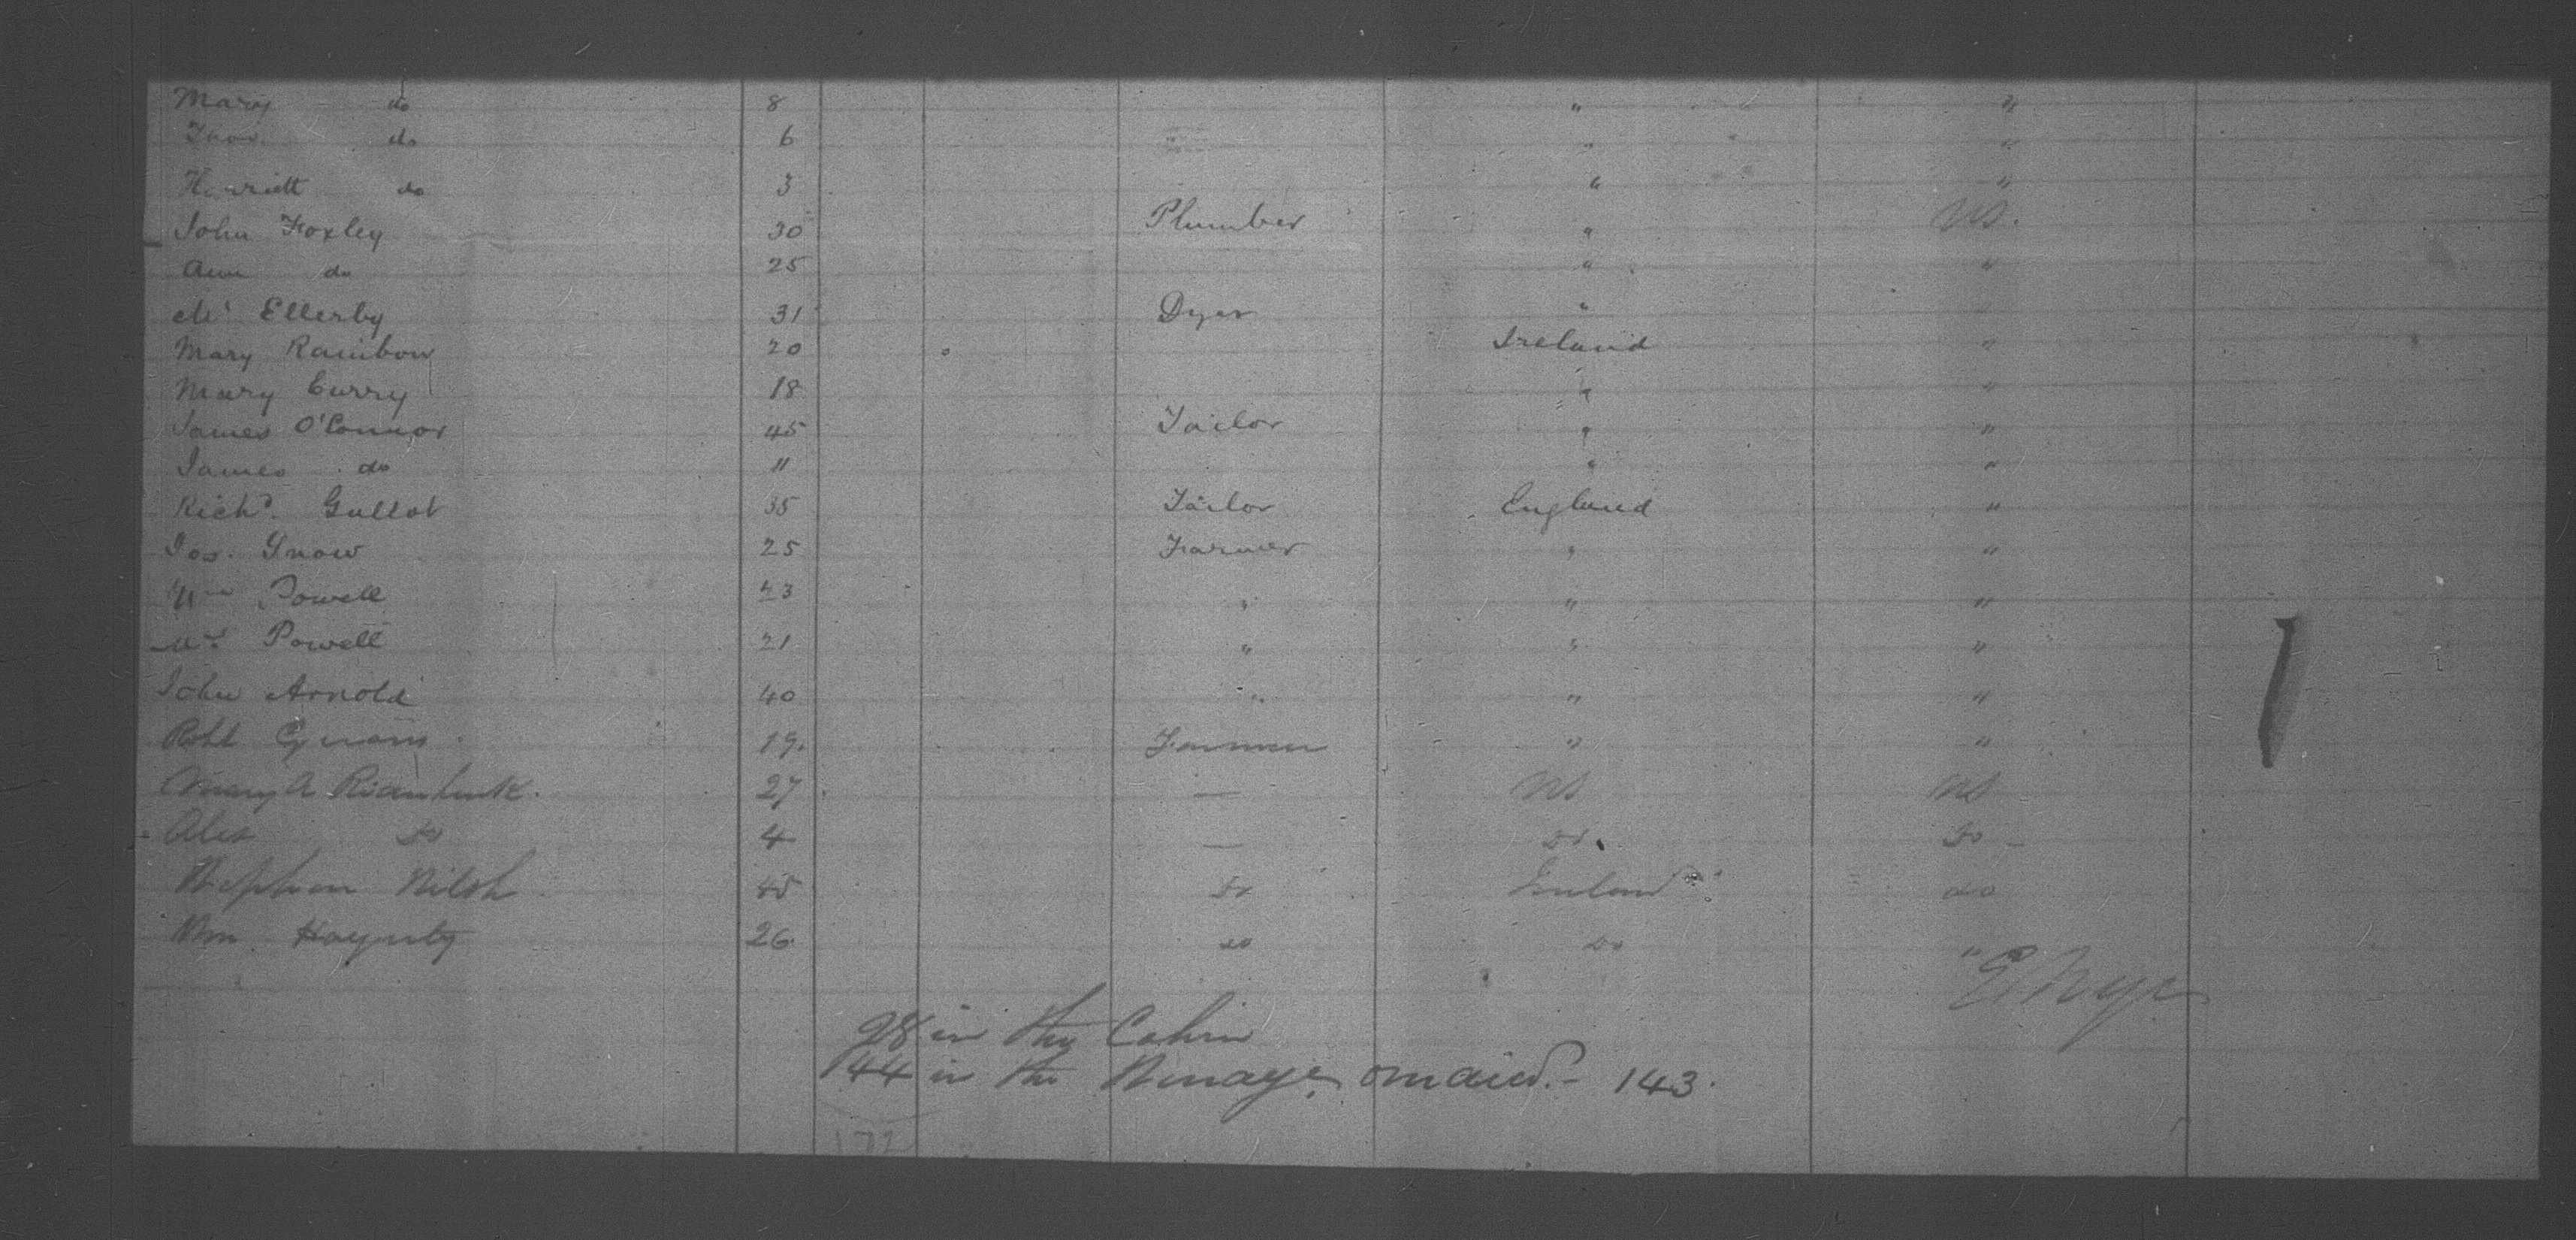 Mary do 8 " "
Thos. do 6 " "
Harriett do 3 " "
John Foxley 30 Plumber " US.
Ann do 25 " "
Ellerby 31 Dyer "
Mary Rainbow 20 Ireland "
Mary Curry 18 " "
James O'Connor 45 Tailor " "
James do 11 " "
Richd. Gullot 35 Tailor England "
Jos. Snow 25 Farmer " "
Wm Powell 43 " " "
Powell 21 " " "
John Arnold 40 " " "
Robt 19. Farmer " "
Mary A 27 — US US
Alex do 4 — do. do
Stephen 45 do do
Wm Hagerty 26 do do "
E Nye
28 in the Cabin
144 in the Steerage 143.
172